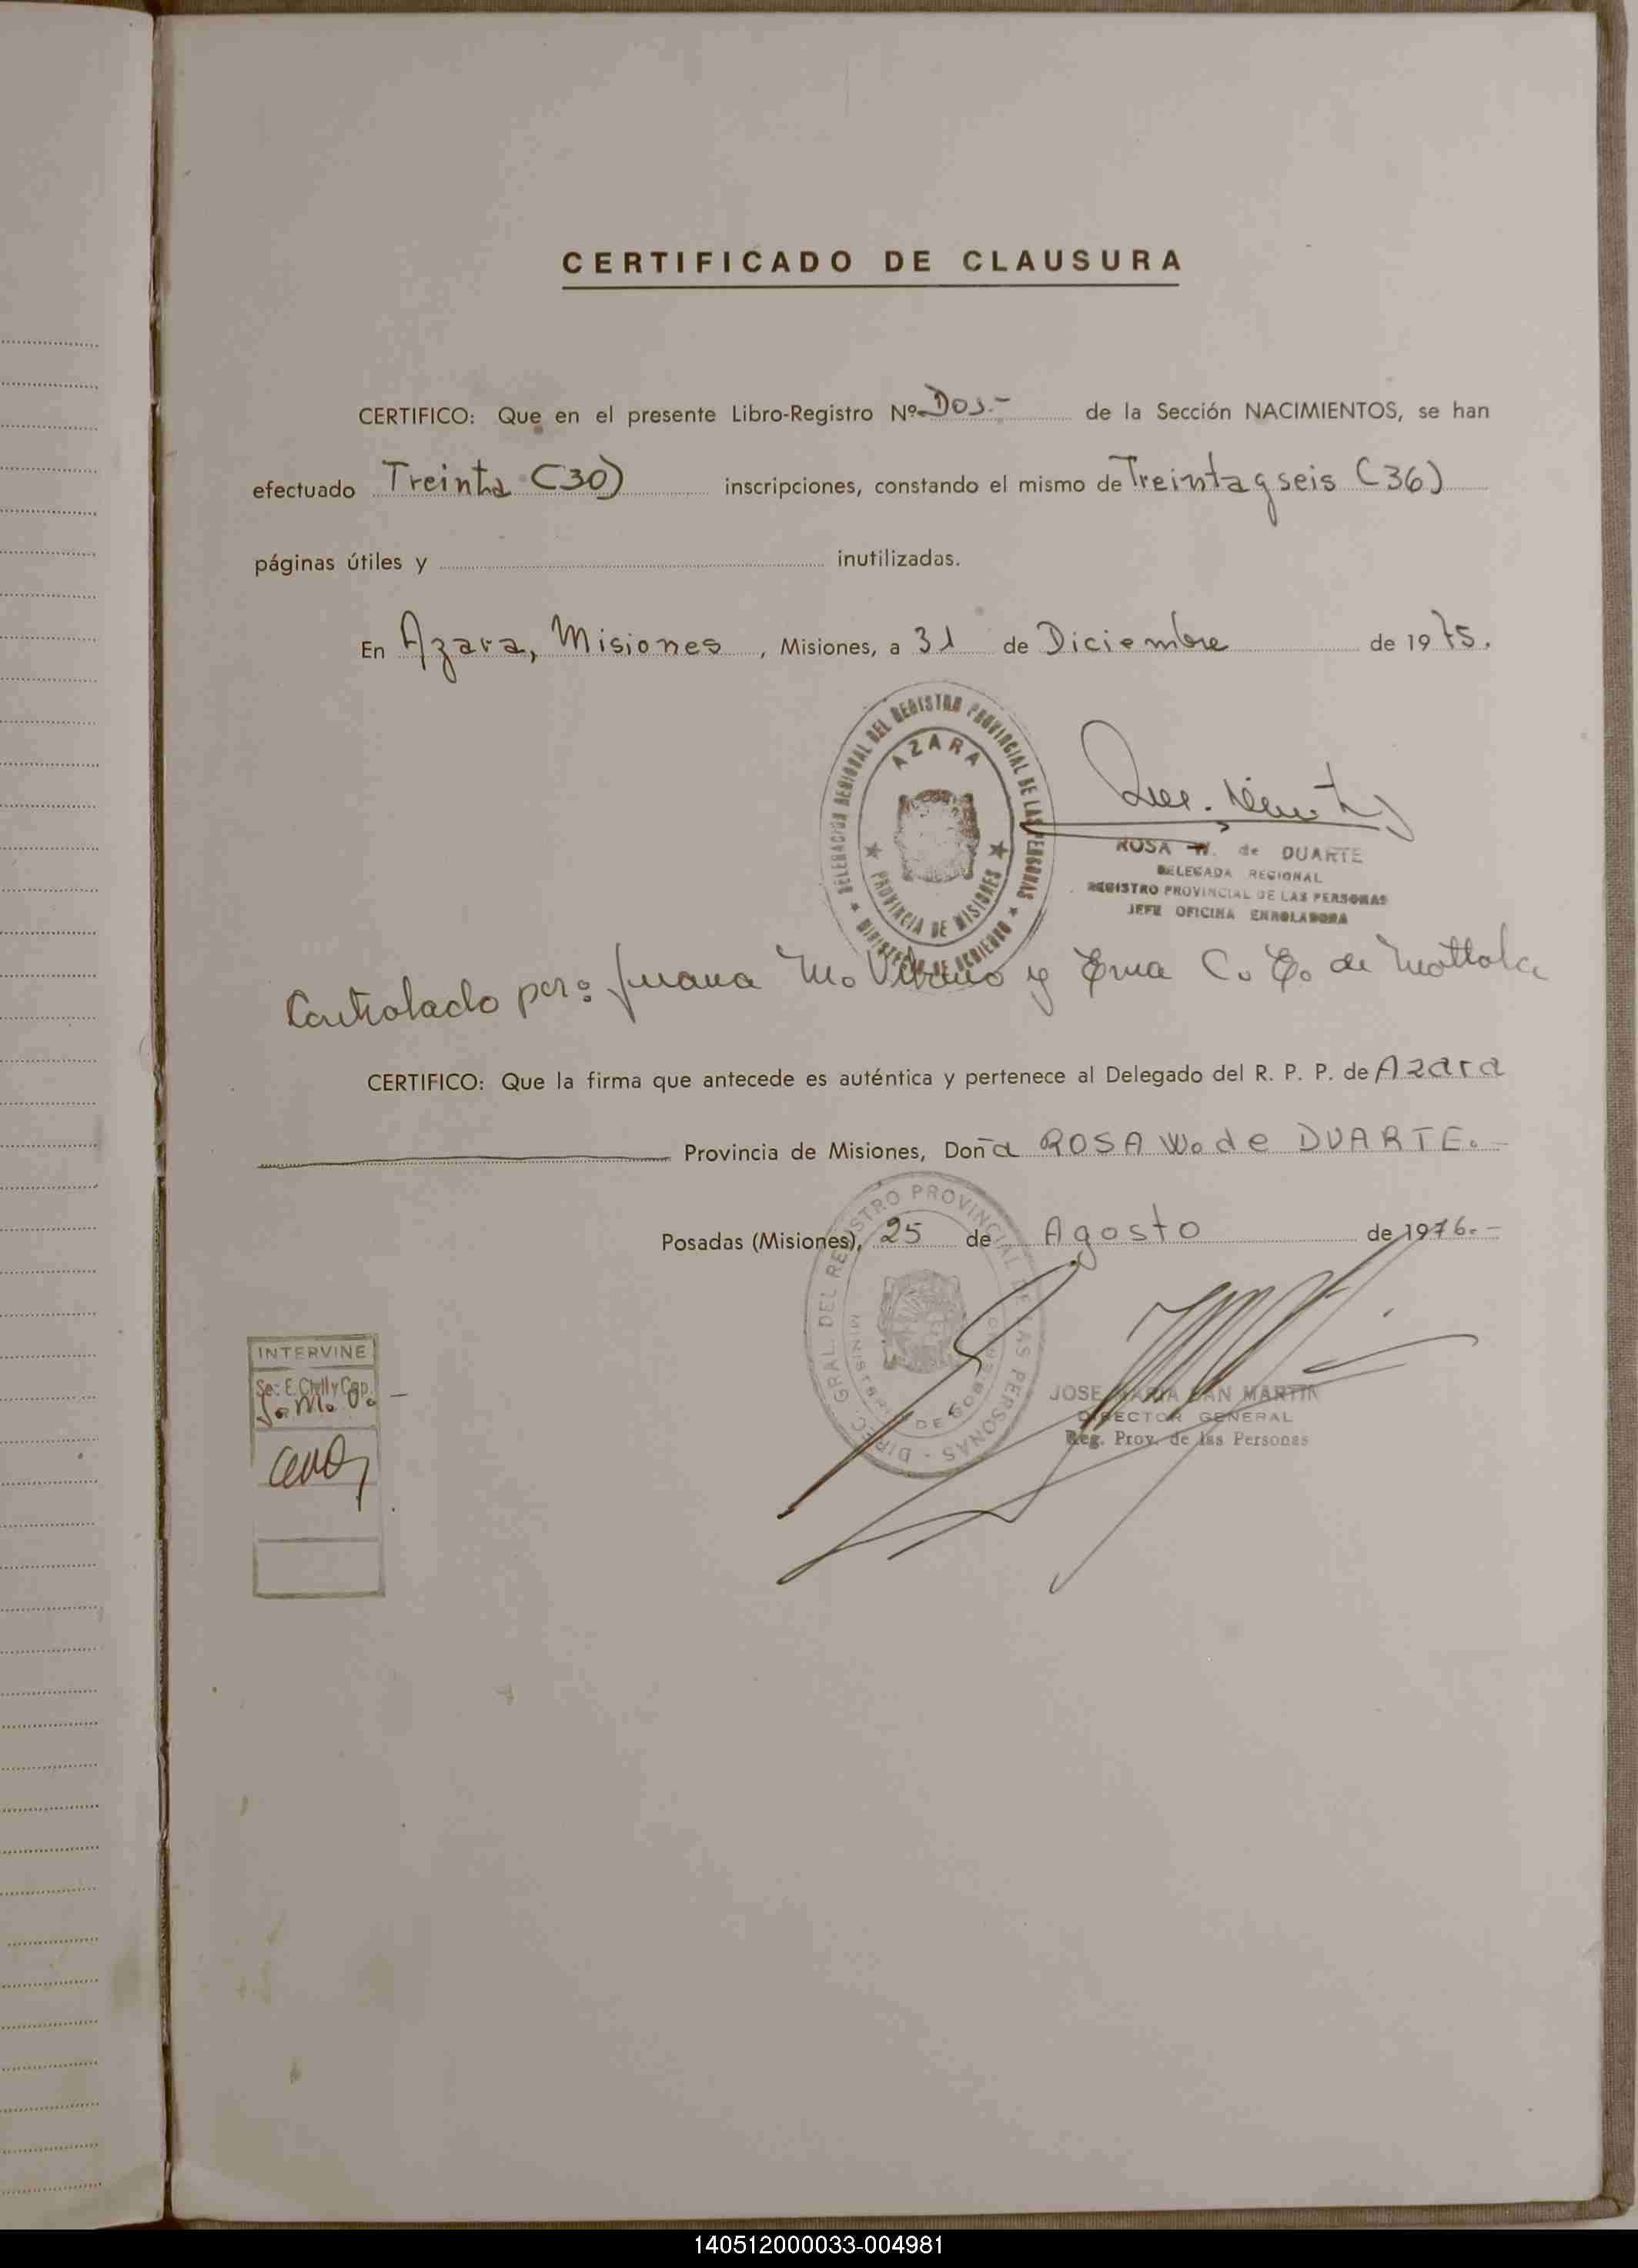 CERTIFICADO DE CLAUSURA
CERTIFICO: Que en el presente Libro-Registro Nº Dos.- de la Sección NACIMIENTOS, se han
efectuado Treinta (30) inscripciones, constando el mismo de Treinta y seis (36)
páginas útiles y inutilizadas.
En Azara, Misiones, Misiones, a 31 de Diciembre de 1975.
DELEGACION REGIONAL DEL REGISTRO PROVINCIAL DE LAS PERSONAS
AZARA
PROVINCIA DE MISIONES
MINISTERIO DE GOBIERNO
ROSA W. de DUARTE
DELEGADA REGIONAL
REGISTRO PROVINCIAL DE LAS PERSONAS
JEFE OFICINA ENROLADORA
Controlado por: Juana M. y Ema C. E. de
CERTIFICO: Que la firma que antecede es auténtica y pertenece al Delegado del R. P. P. de Azara
Provincia de Misiones, Doña ROSA W. de DUARTE.-
Posadas (Misiones), 25 de Agosto de 1976.-
DIREC. GRAL. DEL REGISTRO PROVINCIAL DE LAS PERSONAS
MINISTERIO DE GOBIERNO
INTERVINE
JOSE MARIA SAN MARTIN
DIRECTOR GENERAL
Reg. Prov. de las Personas
140512000033-004981